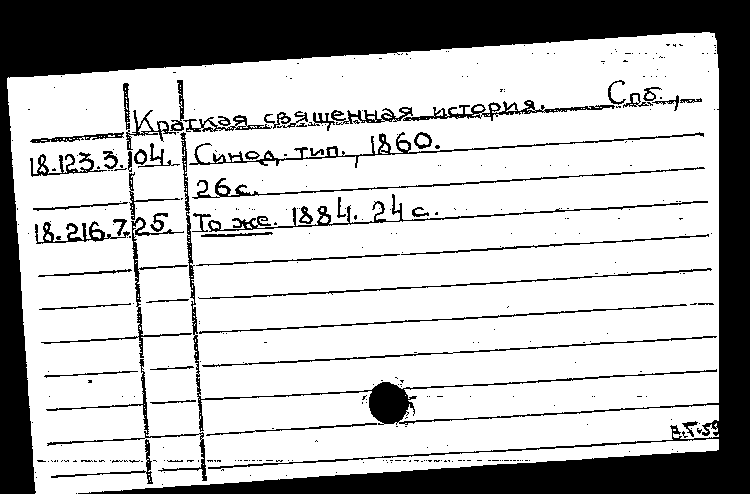 Краткая священная история. Спб.,
18.123.3.104. Синод. тип., 1860.
26 с.
18.216.7.25. То же. 1884. 24 с.